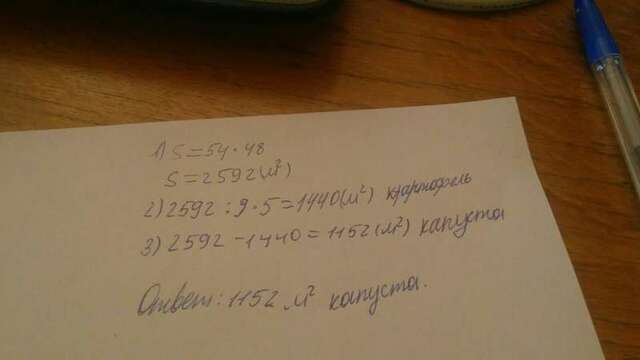 1) S=54·48
S=2592(м²)
2) 2592 : 9·5=1440(м²) картофель
3) 2592-1440=1152(м²) капуста
Ответ: 1152 м² капуста.